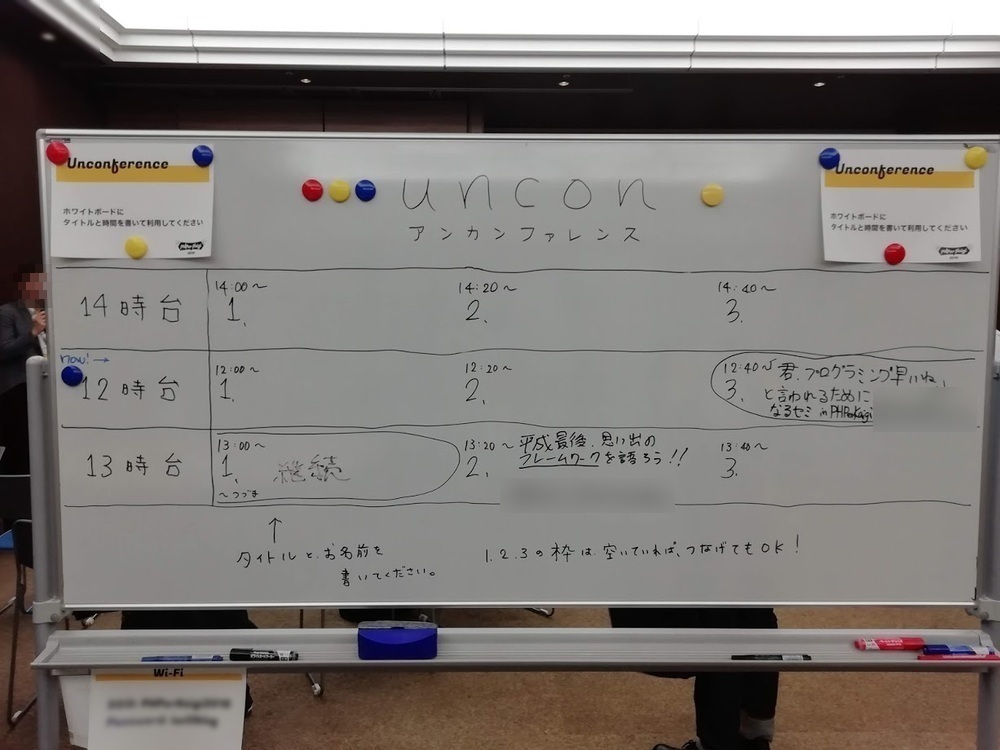 Unconference
ホワイトボードに
タイトルと時間を書いて利用してください
uncon
アンカンファレンス
Unconference
ホワイトボードに
タイトルと時間を書いて利用してください
14時台
14:00～
1.
14:20～
2.
14:40～
3.
now!→
12時台
12:00～
1.
12:20～
2.
12:40～
3.
「君、プログラミング早いね」
と言われるために
なるセミ in PHPerKaigi
13時台
13:00～
1.
継続
～つづき
13:20～
2.
平成最後、思い出の
フレームワークを語ろう!!
13:40～
3.
↑
タイトルと、お名前を
書いてください。
1.2.3の枠は、空いていれば、つなげてもOK!
Wi-Fi